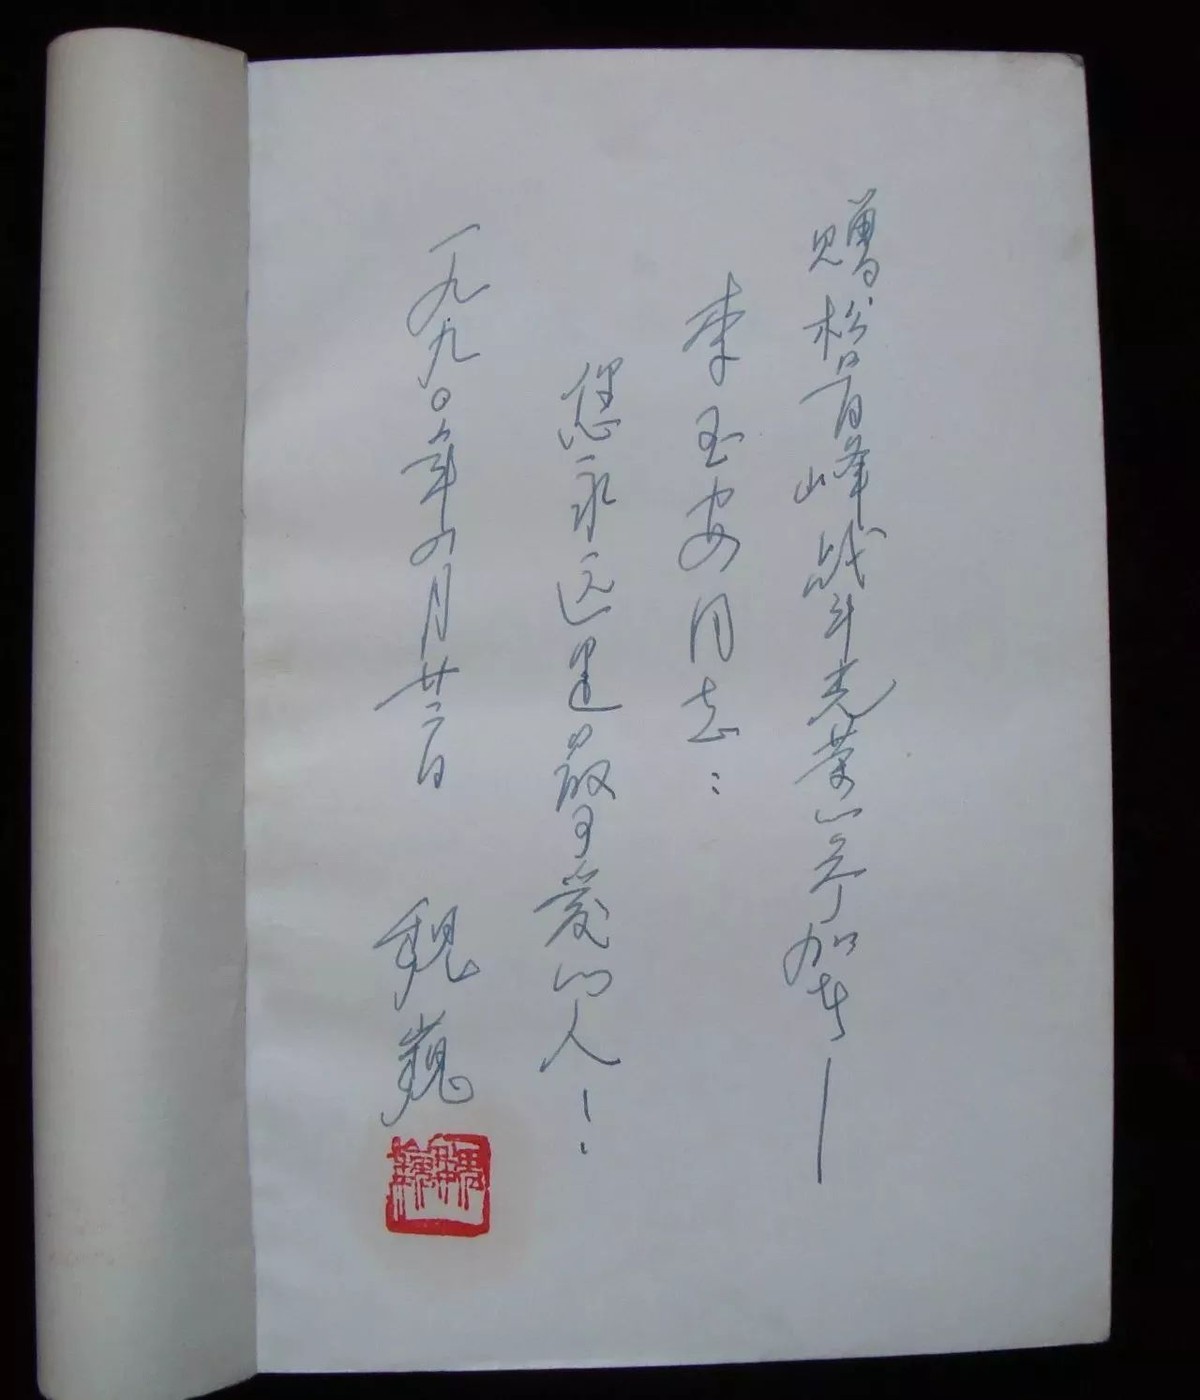 赠松骨峰战斗光荣的参加者——
李玉安同志：
您永远是最可爱的人！
一九九〇年六月廿二日 魏巍